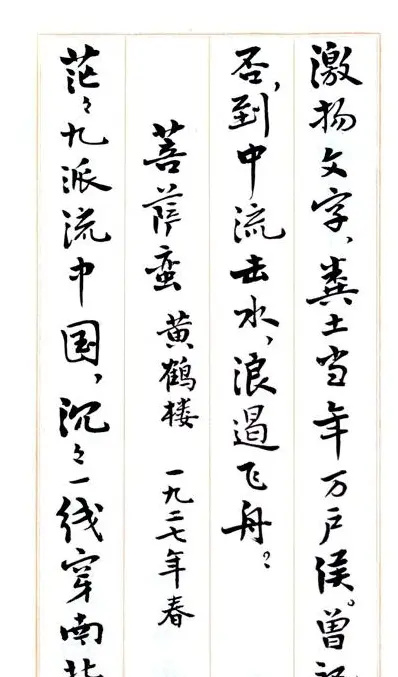 激扬文字、粪土当年万户侯。曾记
否,到中流击水,浪遏飞舟?
菩萨蛮 黄鹤楼 一九二七年春
茫々九派流中国,沉々一线穿南北